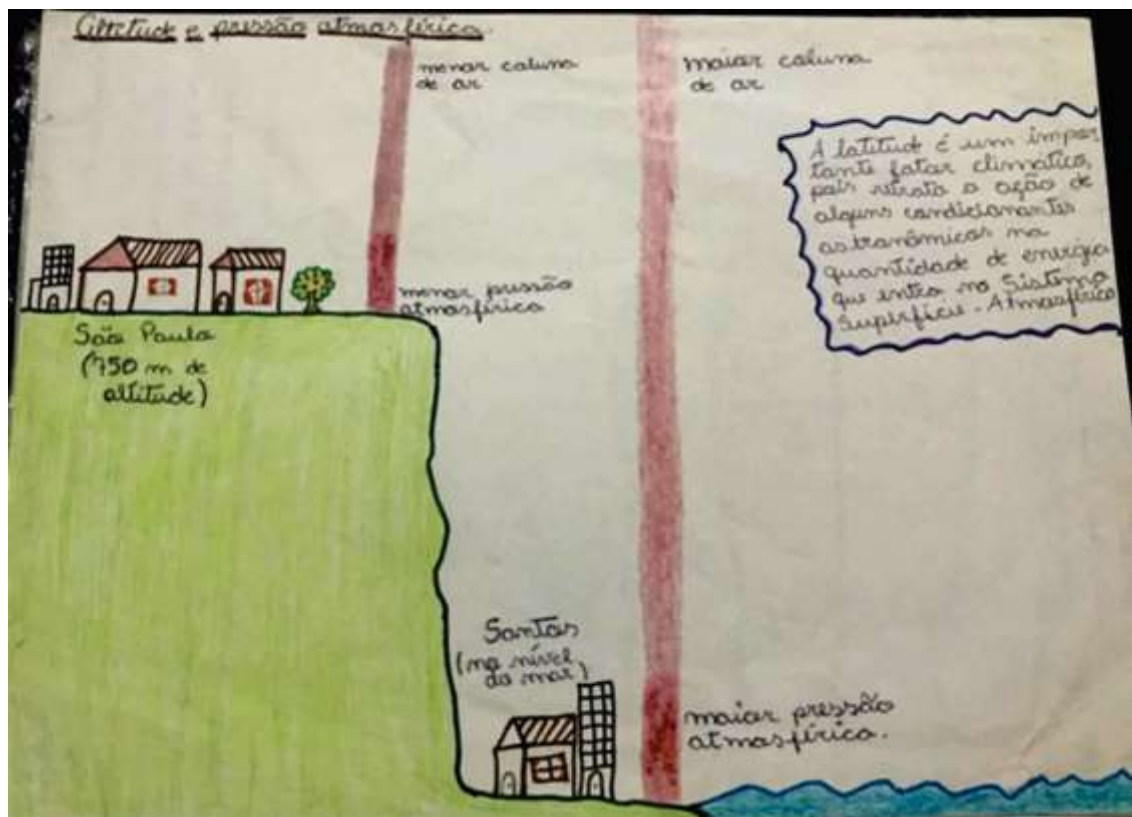 Altitude e pressão atmosférica.
menor coluna
de ar
maior coluna
de ar
A latitude é um impor
tante fator climático,
pois retrata a ação de
alguns condicionantes
astronômicos na
quantidade de energia
que entra no Sistema
Superfície-Atmosférica
menor pressão
atmosférica
São Paulo
(750 m de
altitude)
Santos
(no nível
do mar)
maior pressão
atmosférica.